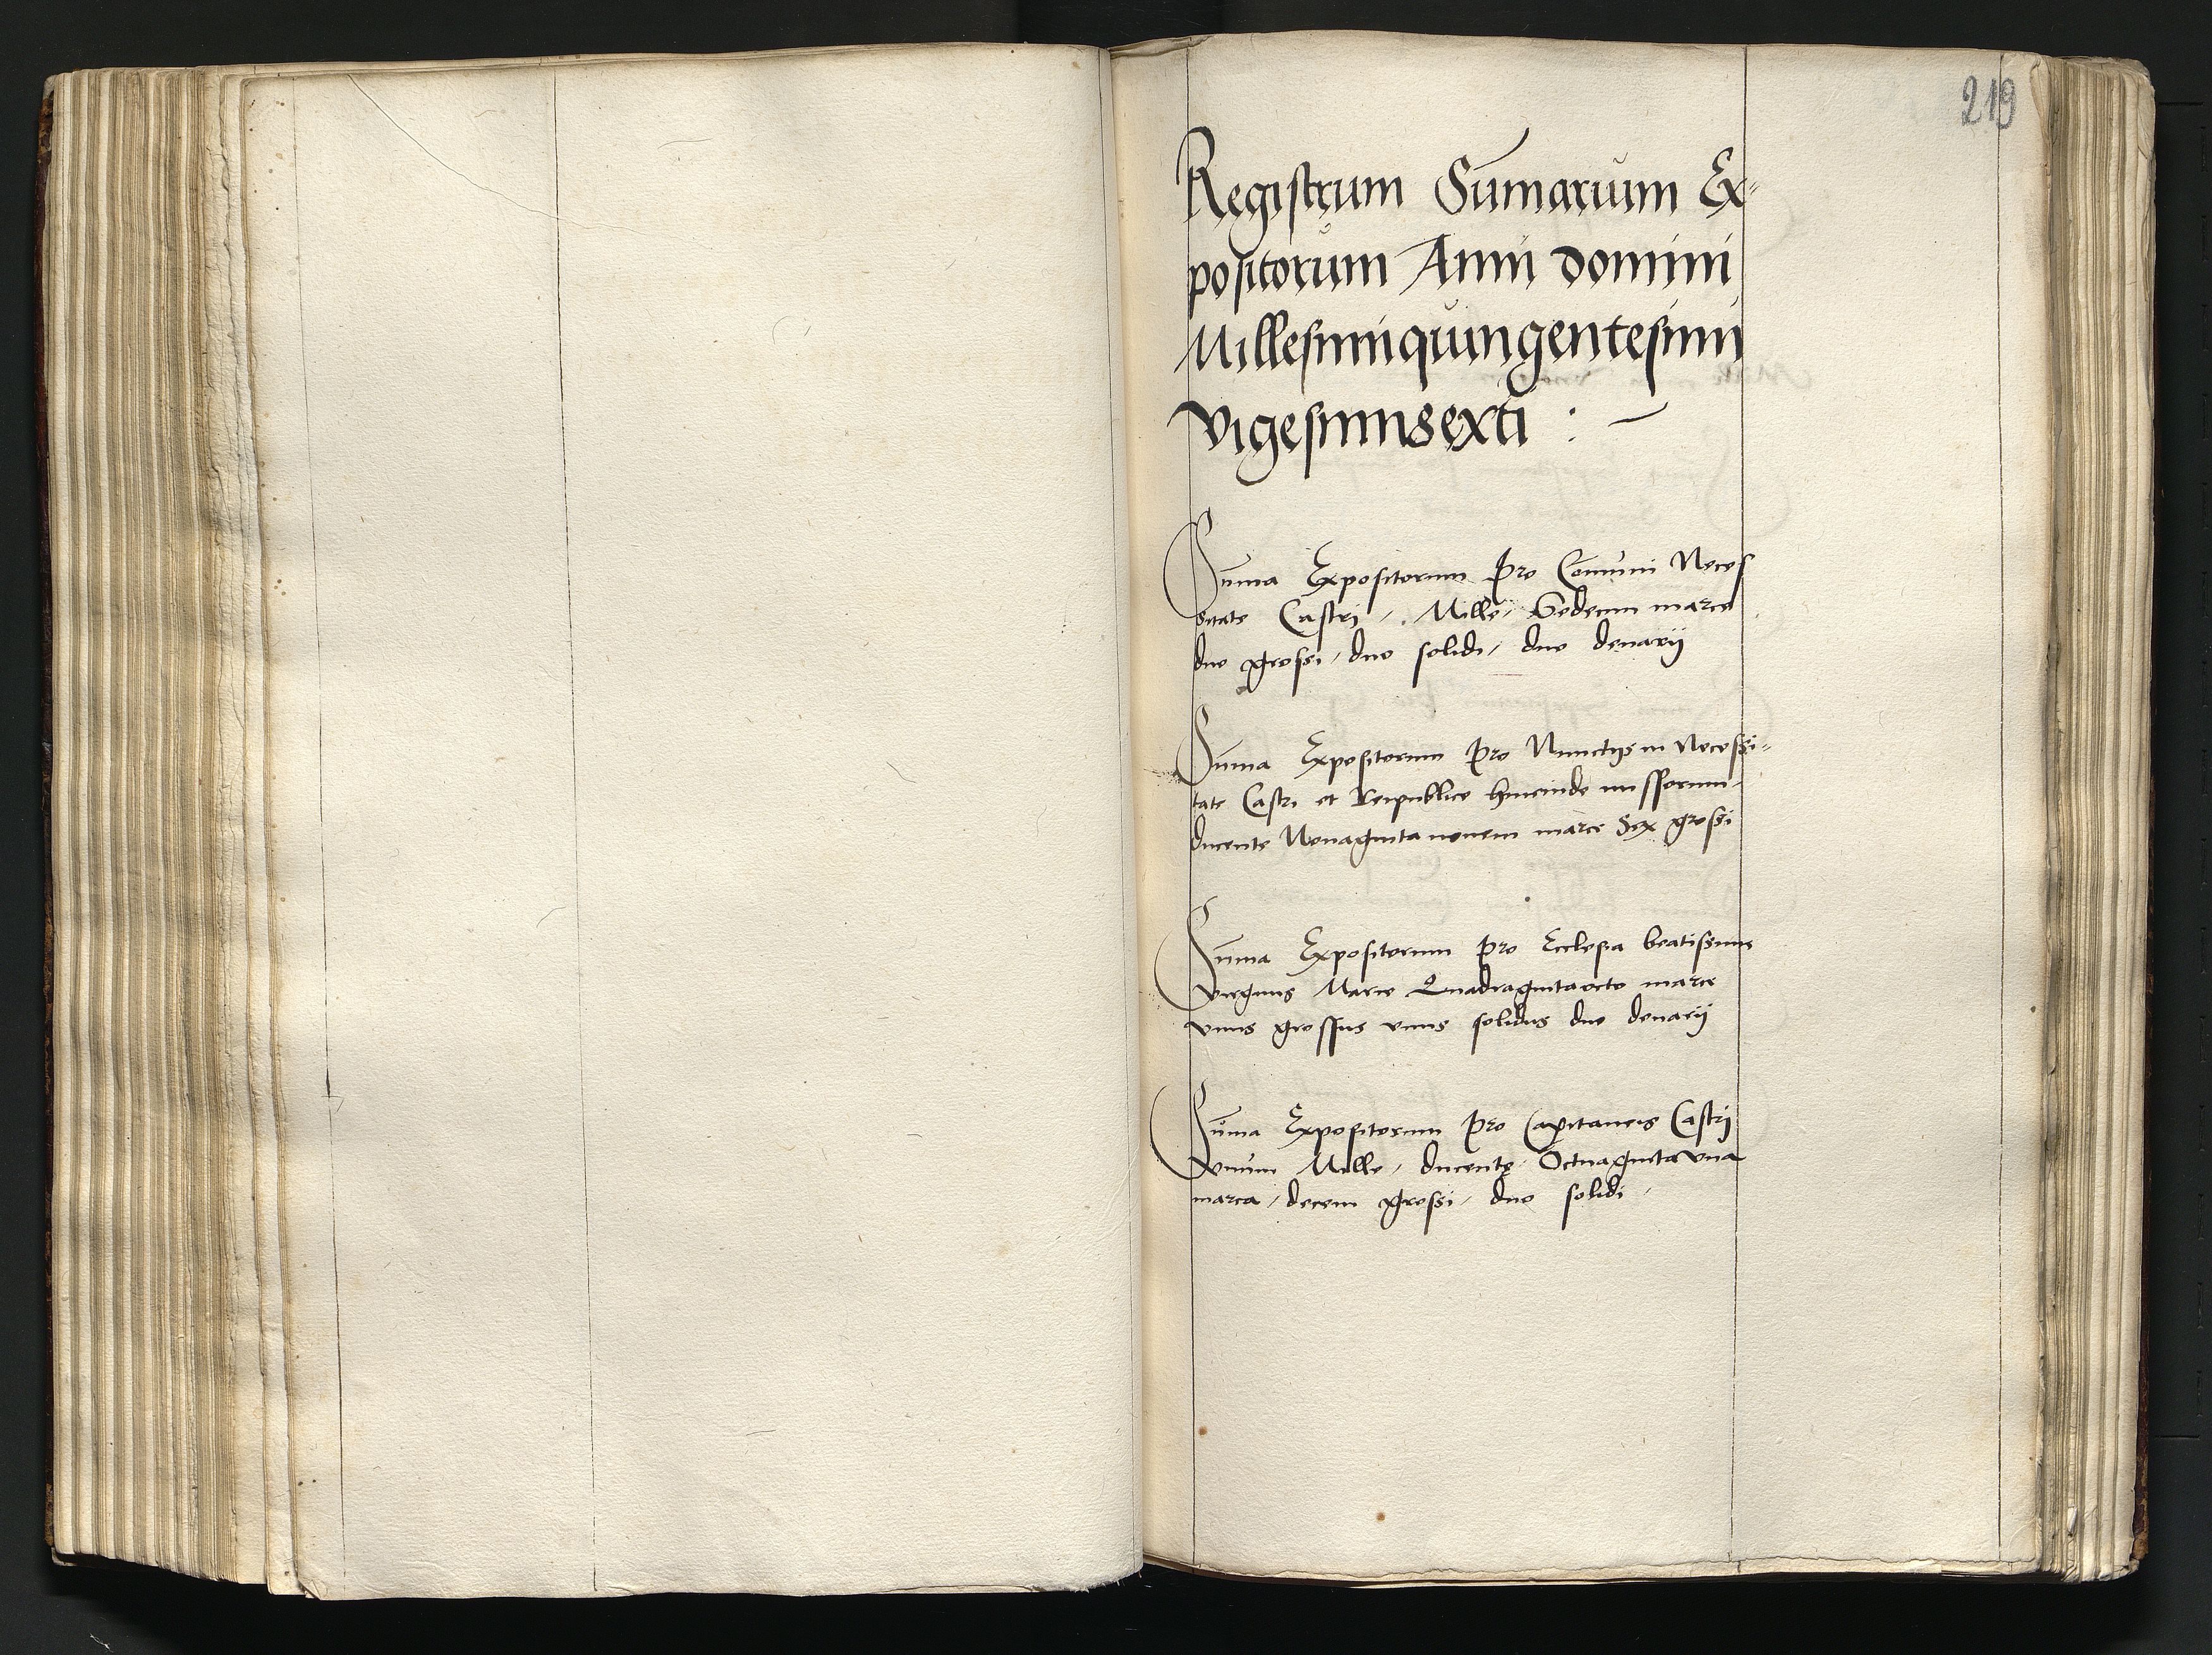 219
Registrum Sumarum Ex=
positorum Anni domini
Millesimiquingentesimi
vigesimisexti : ~
Suma Expositorum Pro Comuni Neces
sitate Castri /. Mille / Sedecim marce
duo grossi / duo solidi / duo denarij
Suma Expositorum Pro Nunctijs in Necessi=
tate Castri et Reipublice hincinde missorum
ducente Nonagintanovem marce Sex grossi
Suma Expositorum Pro Ecclesia beatissime
virginis Marie Quadragintaocto marce
vnus grossus vnus solidus duo denarij
Suma Expositorum Pro Capitaneis Castri
vnum Mille / ducente Octuagintavna
marca / decem grossi / duo solidi /